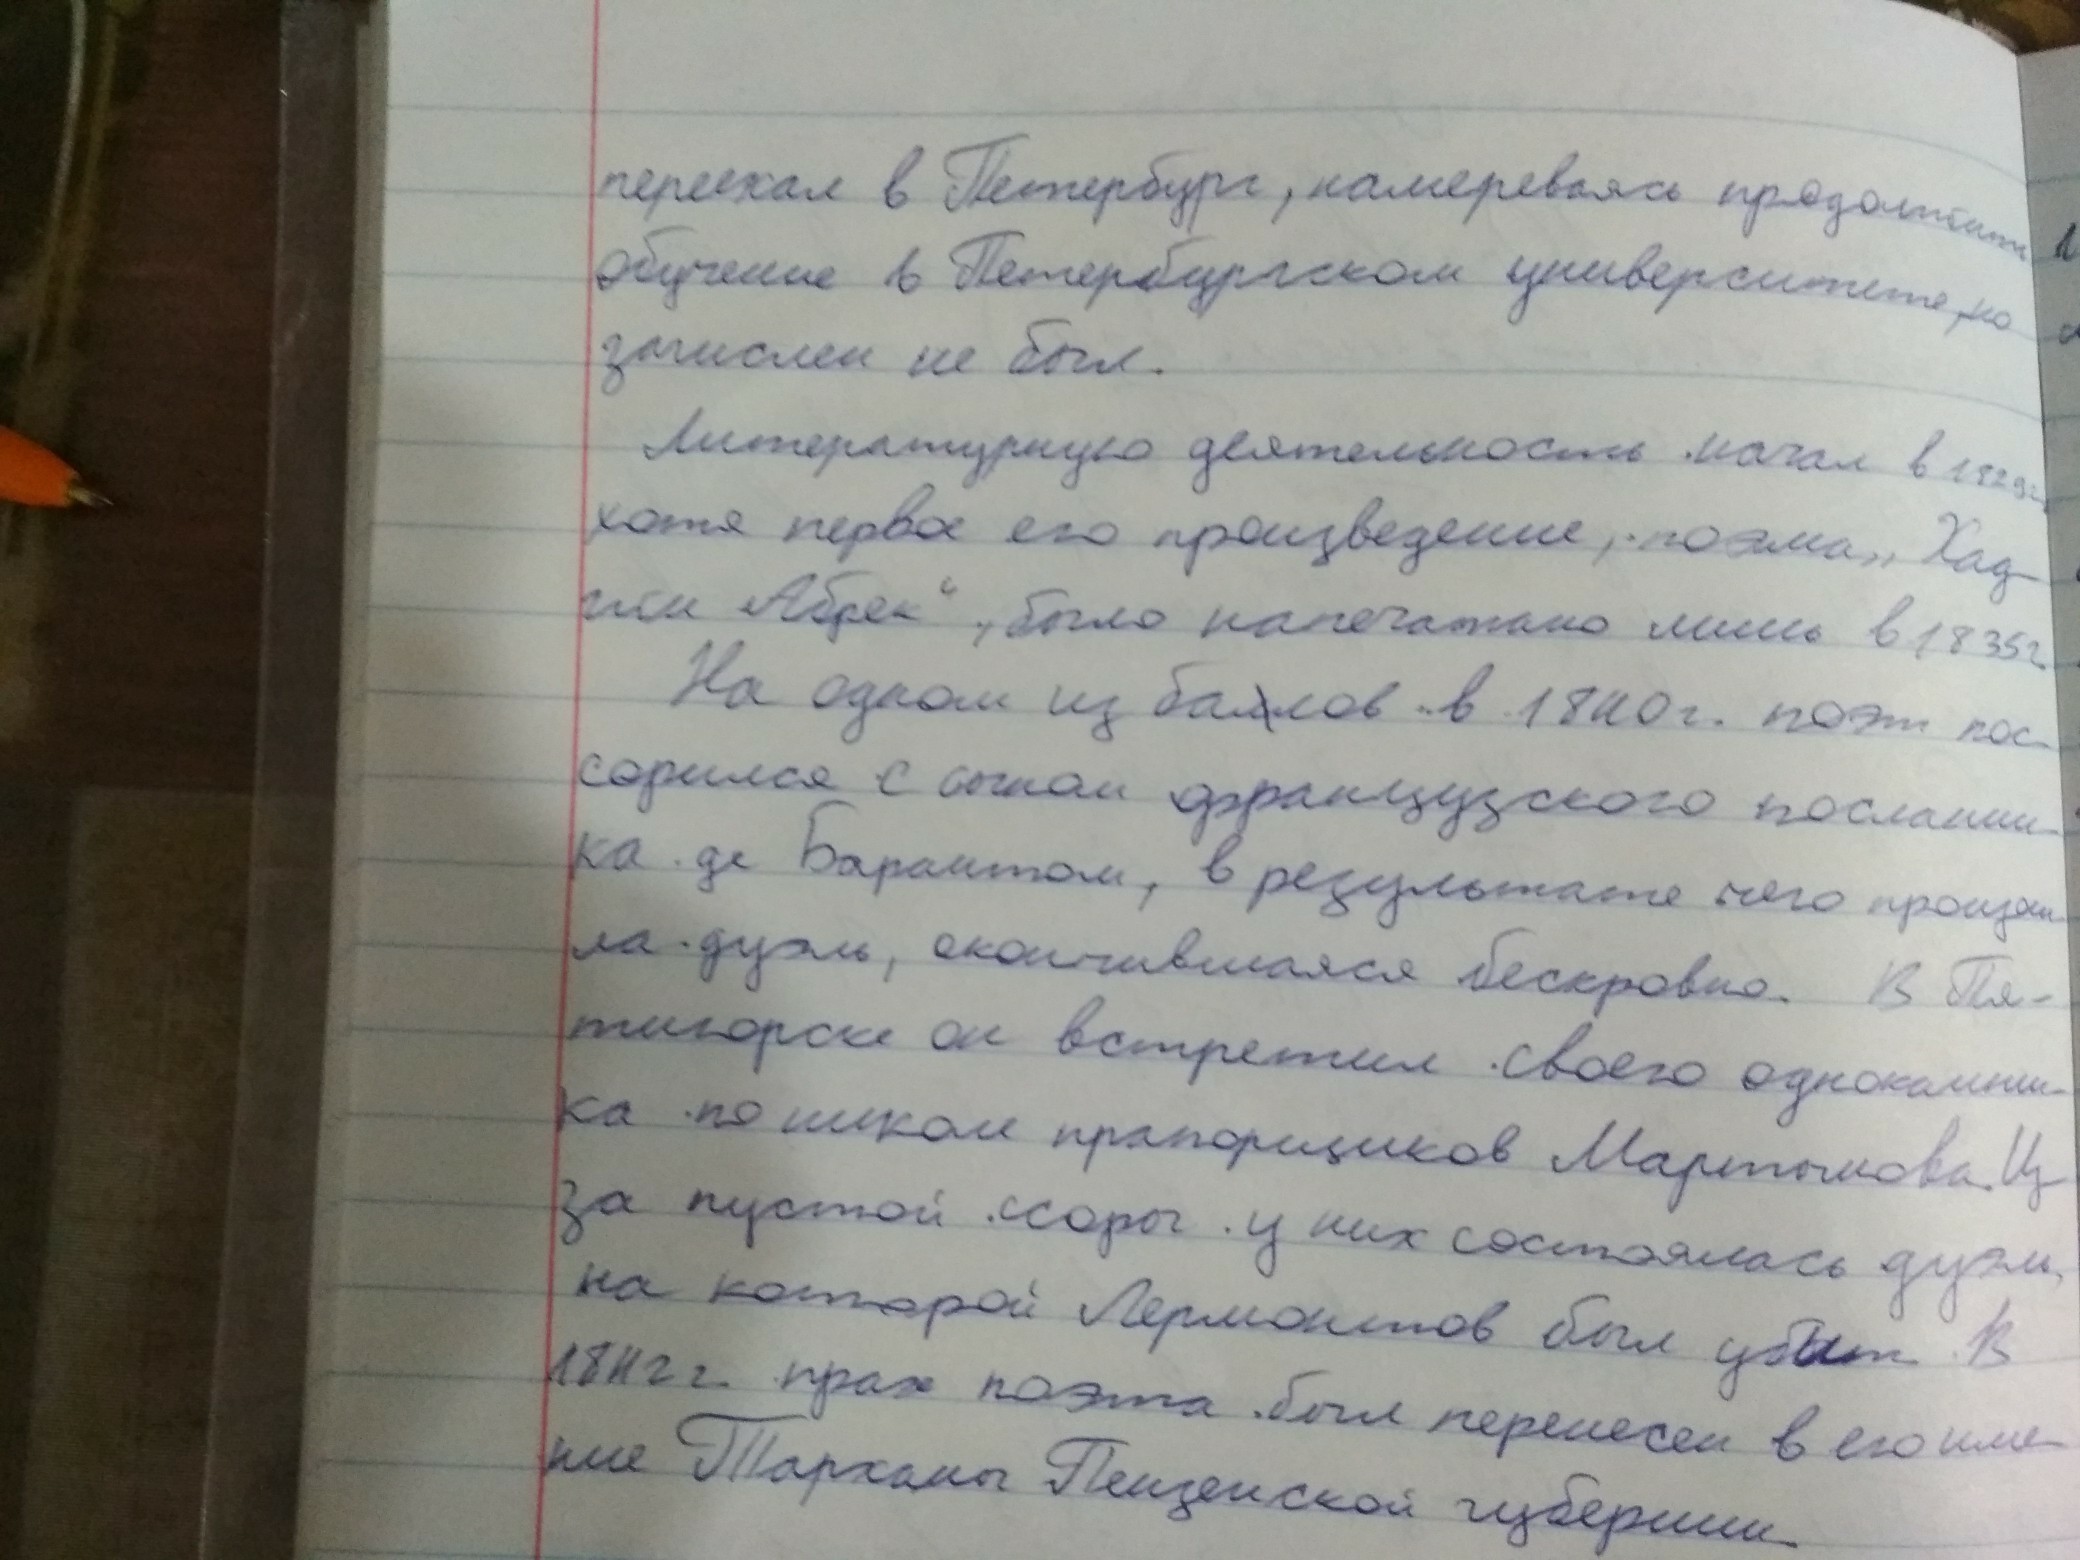 переехал в Петербург, намереваясь продолжить
обучение в Петербургском университете, но
зачислен не был.
Литературную деятельность начал в 1829г,
хотя первое его произведение, поэма „Хад-
жи Абрек“, было напечатано лишь в 1835г.
На одном из балов в 1840г. поэт пос-
сорился с сыном французского посланни-
ка де Барантом, в результате чего произош
ла дуэль, окончившаяся бескровно. В Пя-
тигорске он встретил своего однокашни-
ка по школе прапорщиков Мартынова. Из
за пустой ссоры у них состоялась дуэль,
на которой Лермонтов был убит. В
1842г. прах поэта был перенесен в его име-
ние Тарханы Пензенской губернии.